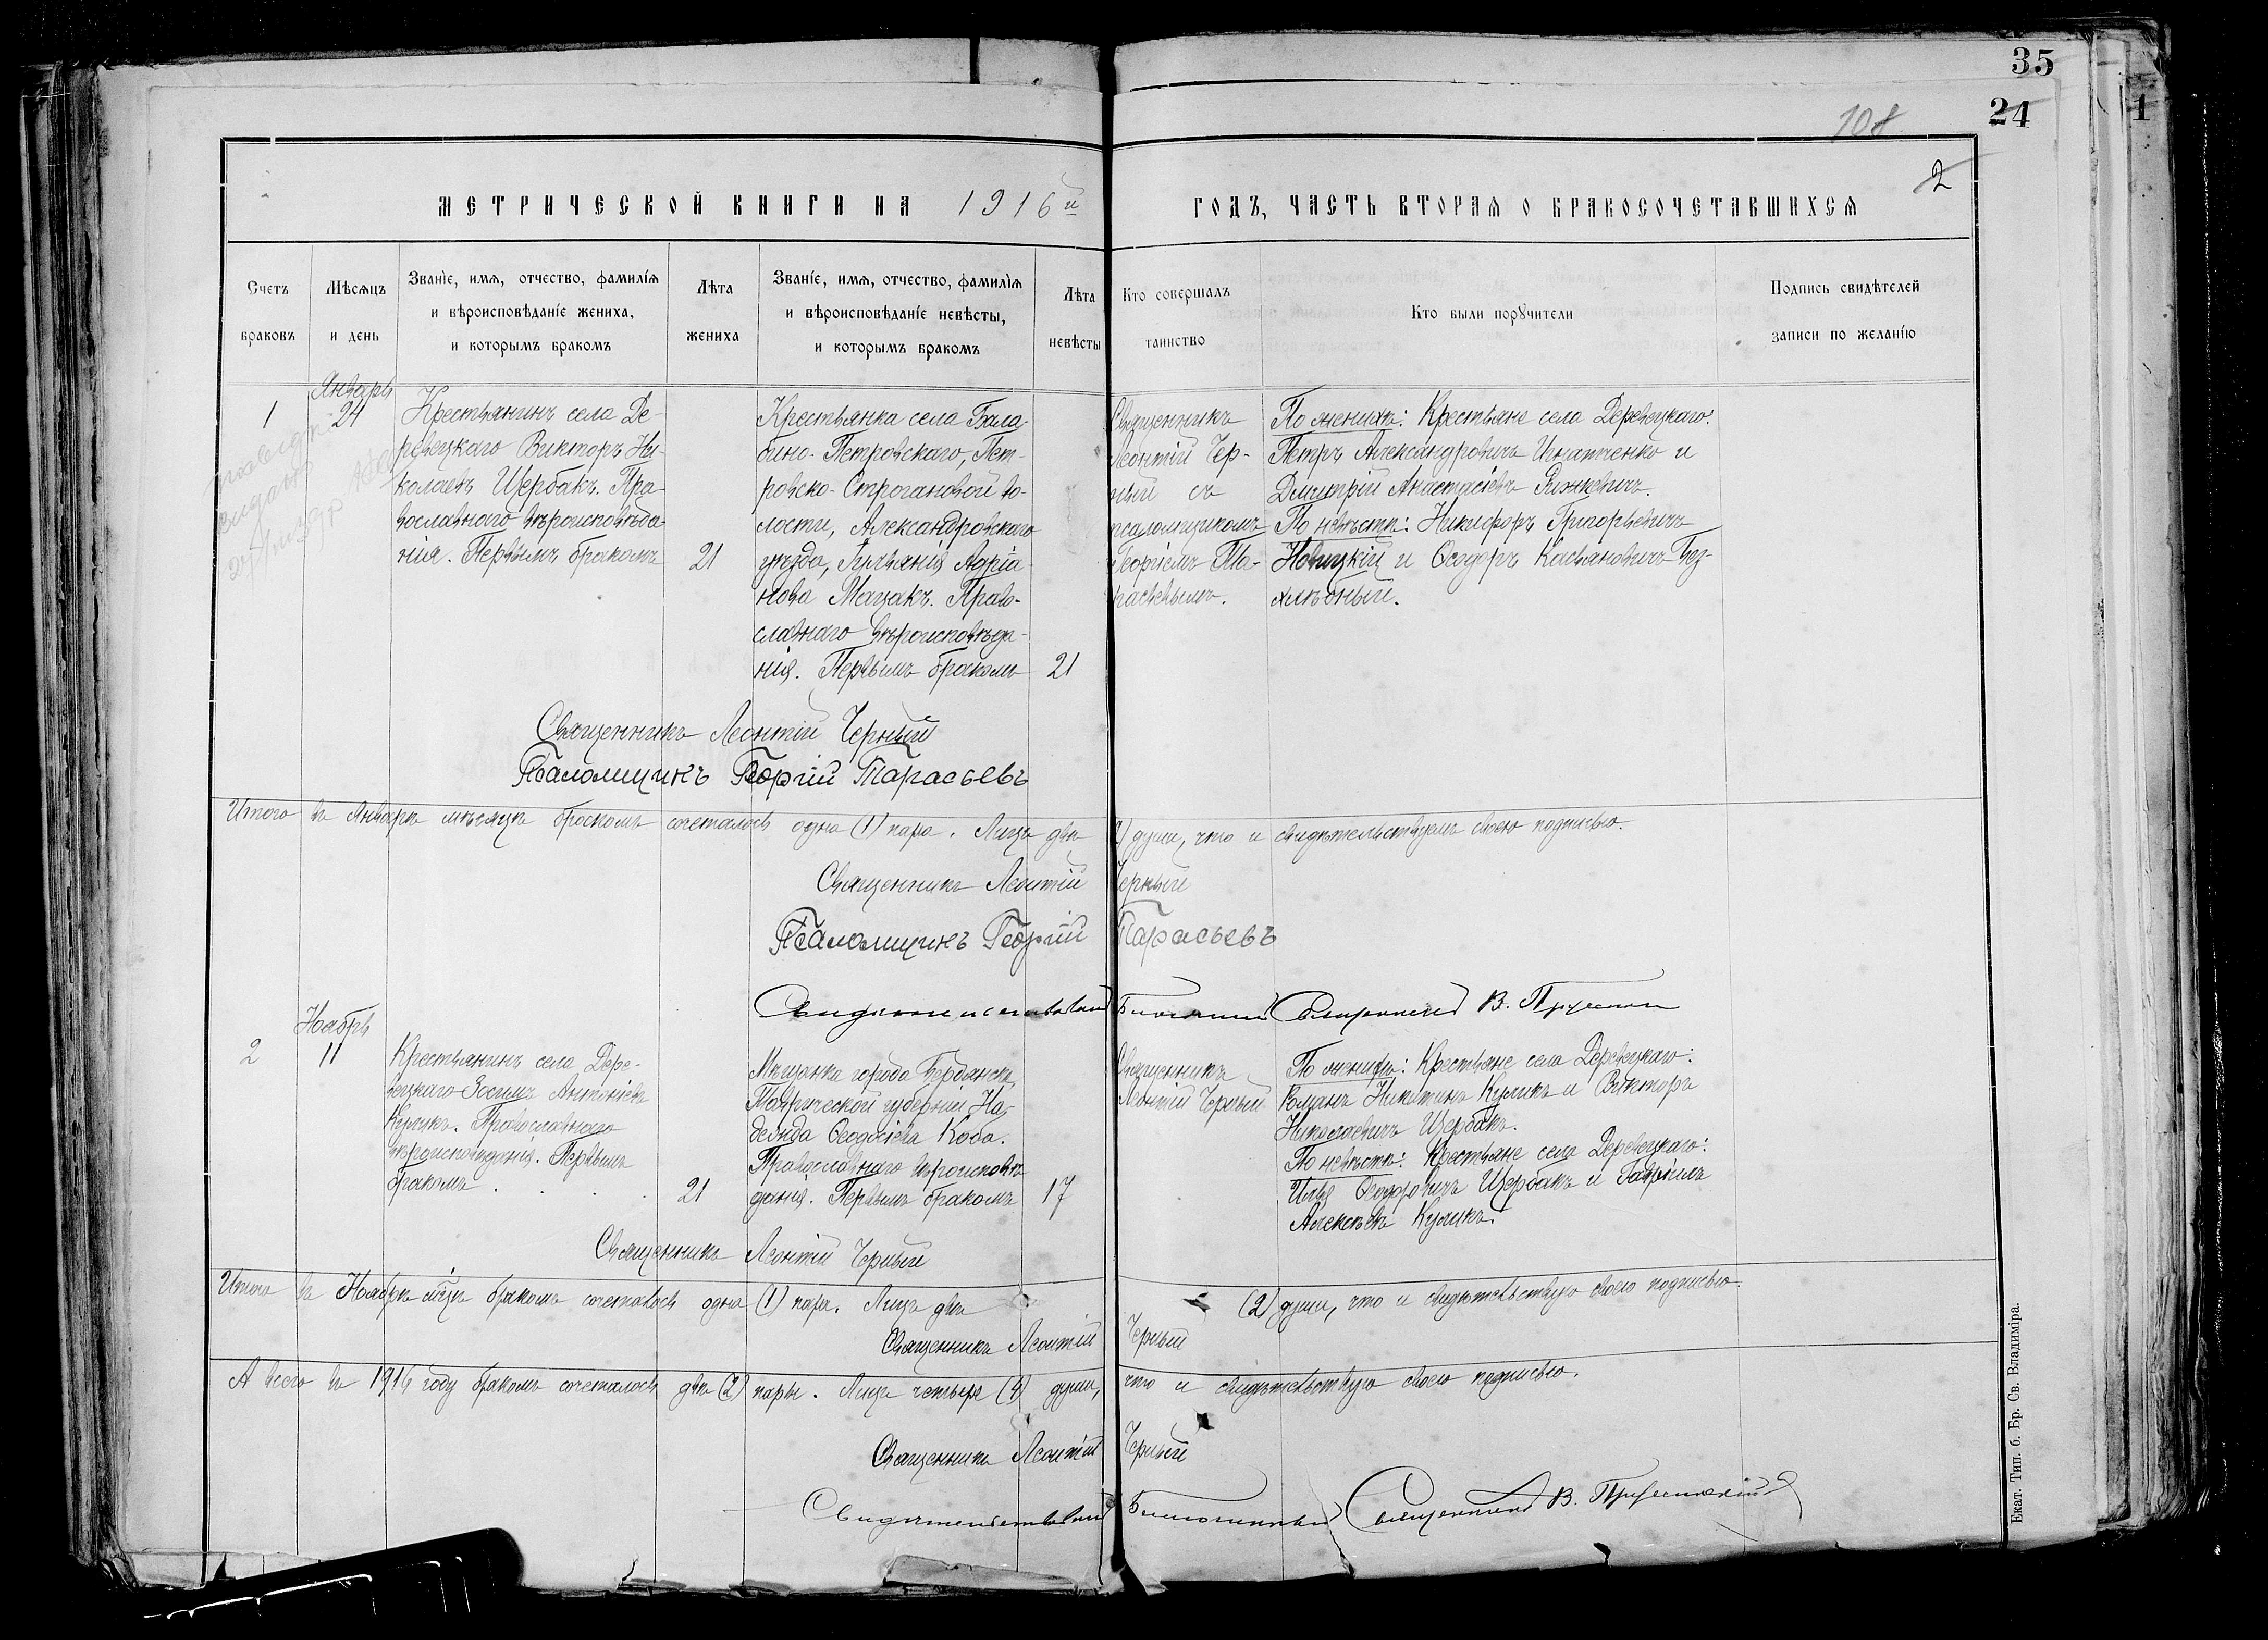 35
24
108
2
МЕТРИЧЕСКОЙ КНИГИ НА 1916й ГОДЪ, ЧАСТЬ ВТОРАЯ О БРАКОСОЧЕТАВШИХСЯ
Счетъ
браковъ
Мѣсяцъ
и день
Званіе, имя, отчество, фамилія
и вѣроисповѣданіе жениха,
и которымъ бракомъ
Лѣта
жениха
Званіе, имя, отчество, фамилія
и вѣроисповѣданіе невѣсты,
и которымъ бракомъ
Лѣта
невѣсты
Кто совершалъ
таинство
Кто были порꙋчители
Подпись свидѣтелей
записи по желанію
1
Январь
24
Крестьянинъ села Де-
ревецкаго Викторъ Ни-
колаевъ Щербакъ. Пра-
вославнаго вѣроисповѣда-
нія. Первымъ бракомъ
21
Крестьянка села Бала-
бино-Петровскаго, Пет-
ровско-Строгановой во-
лости, Александровскаго
уѣзда, Адріа-
нова Мацакъ. Право-
славнаго вѣроисповѣда-
нія. Первымъ бракомъ
21
Священникъ
Леонтій Чер-
ный съ
псаломщикомъ
Георгіемъ Та-
расьевымъ.
По женихѣ: Крестьяне села Деревецкаго:
Петръ Александровичъ Игнатченко и
Дмитрій Анастасіевъ
По невѣстѣ: Никифоръ Григорьевичъ
Новицкій и Ѳеодоръ Касьяновичъ Без-
хлѣбный.
Священникъ Леонтій Черный
Псаломщикъ Георгій Тарасьевъ
Итого въ Январѣ мѣсяцѣ бракомъ сочеталось одна (1) пара. Лицъ двѣ (2) души, что и свидѣтельствуемъ своею подписью.
Священникъ Леонтій Черный
Псаломщикъ Георгій Тарасьевъ
Свидѣтельствовалъ Благочинный Священникъ В.
2
Ноябрь
11
Крестьянинъ села Дере-
вецкаго Зосимъ Антоніевъ
Куликъ. Православнаго
вѣроисповѣданія. Первымъ
бракомъ . . . .
21
Мѣщанка города Бердянска,
Таврической губерніи На-
дежда Ѳеодосіева Коба.
Православнаго вѣроисповѣ-
данія. Первымъ бракомъ
17
Священникъ
Леонтій Черный
По женихѣ: Крестьяне села Деревецкаго:
Романъ Никитинъ Куликъ и Викторъ
Николаевичъ Щербакъ.
По невѣстѣ: Крестьяне села Деревецкаго:
Илья Ѳеодоровичъ Щербакъ и Гавріилъ
Алексѣевъ Куликъ.
Священникъ Леонтій Черный
Итого въ Ноябрѣ мѣцѣ бракомъ сочеталось одна (1) пара. Лицъ двѣ (2) души, что и свидѣтельствую своею подписью.
Священникъ Леонтій Черный
А всего въ 1916 году бракомъ сочеталось двѣ (2) пары. Лицъ четыре (4) души, что и свидѣтельствую своею подписью.
Священникъ Леонтій Черный
Свидѣтельствовалъ Благочинный Священникъ В.
Екат. Тип. б. Бр. Св. Владиміра.